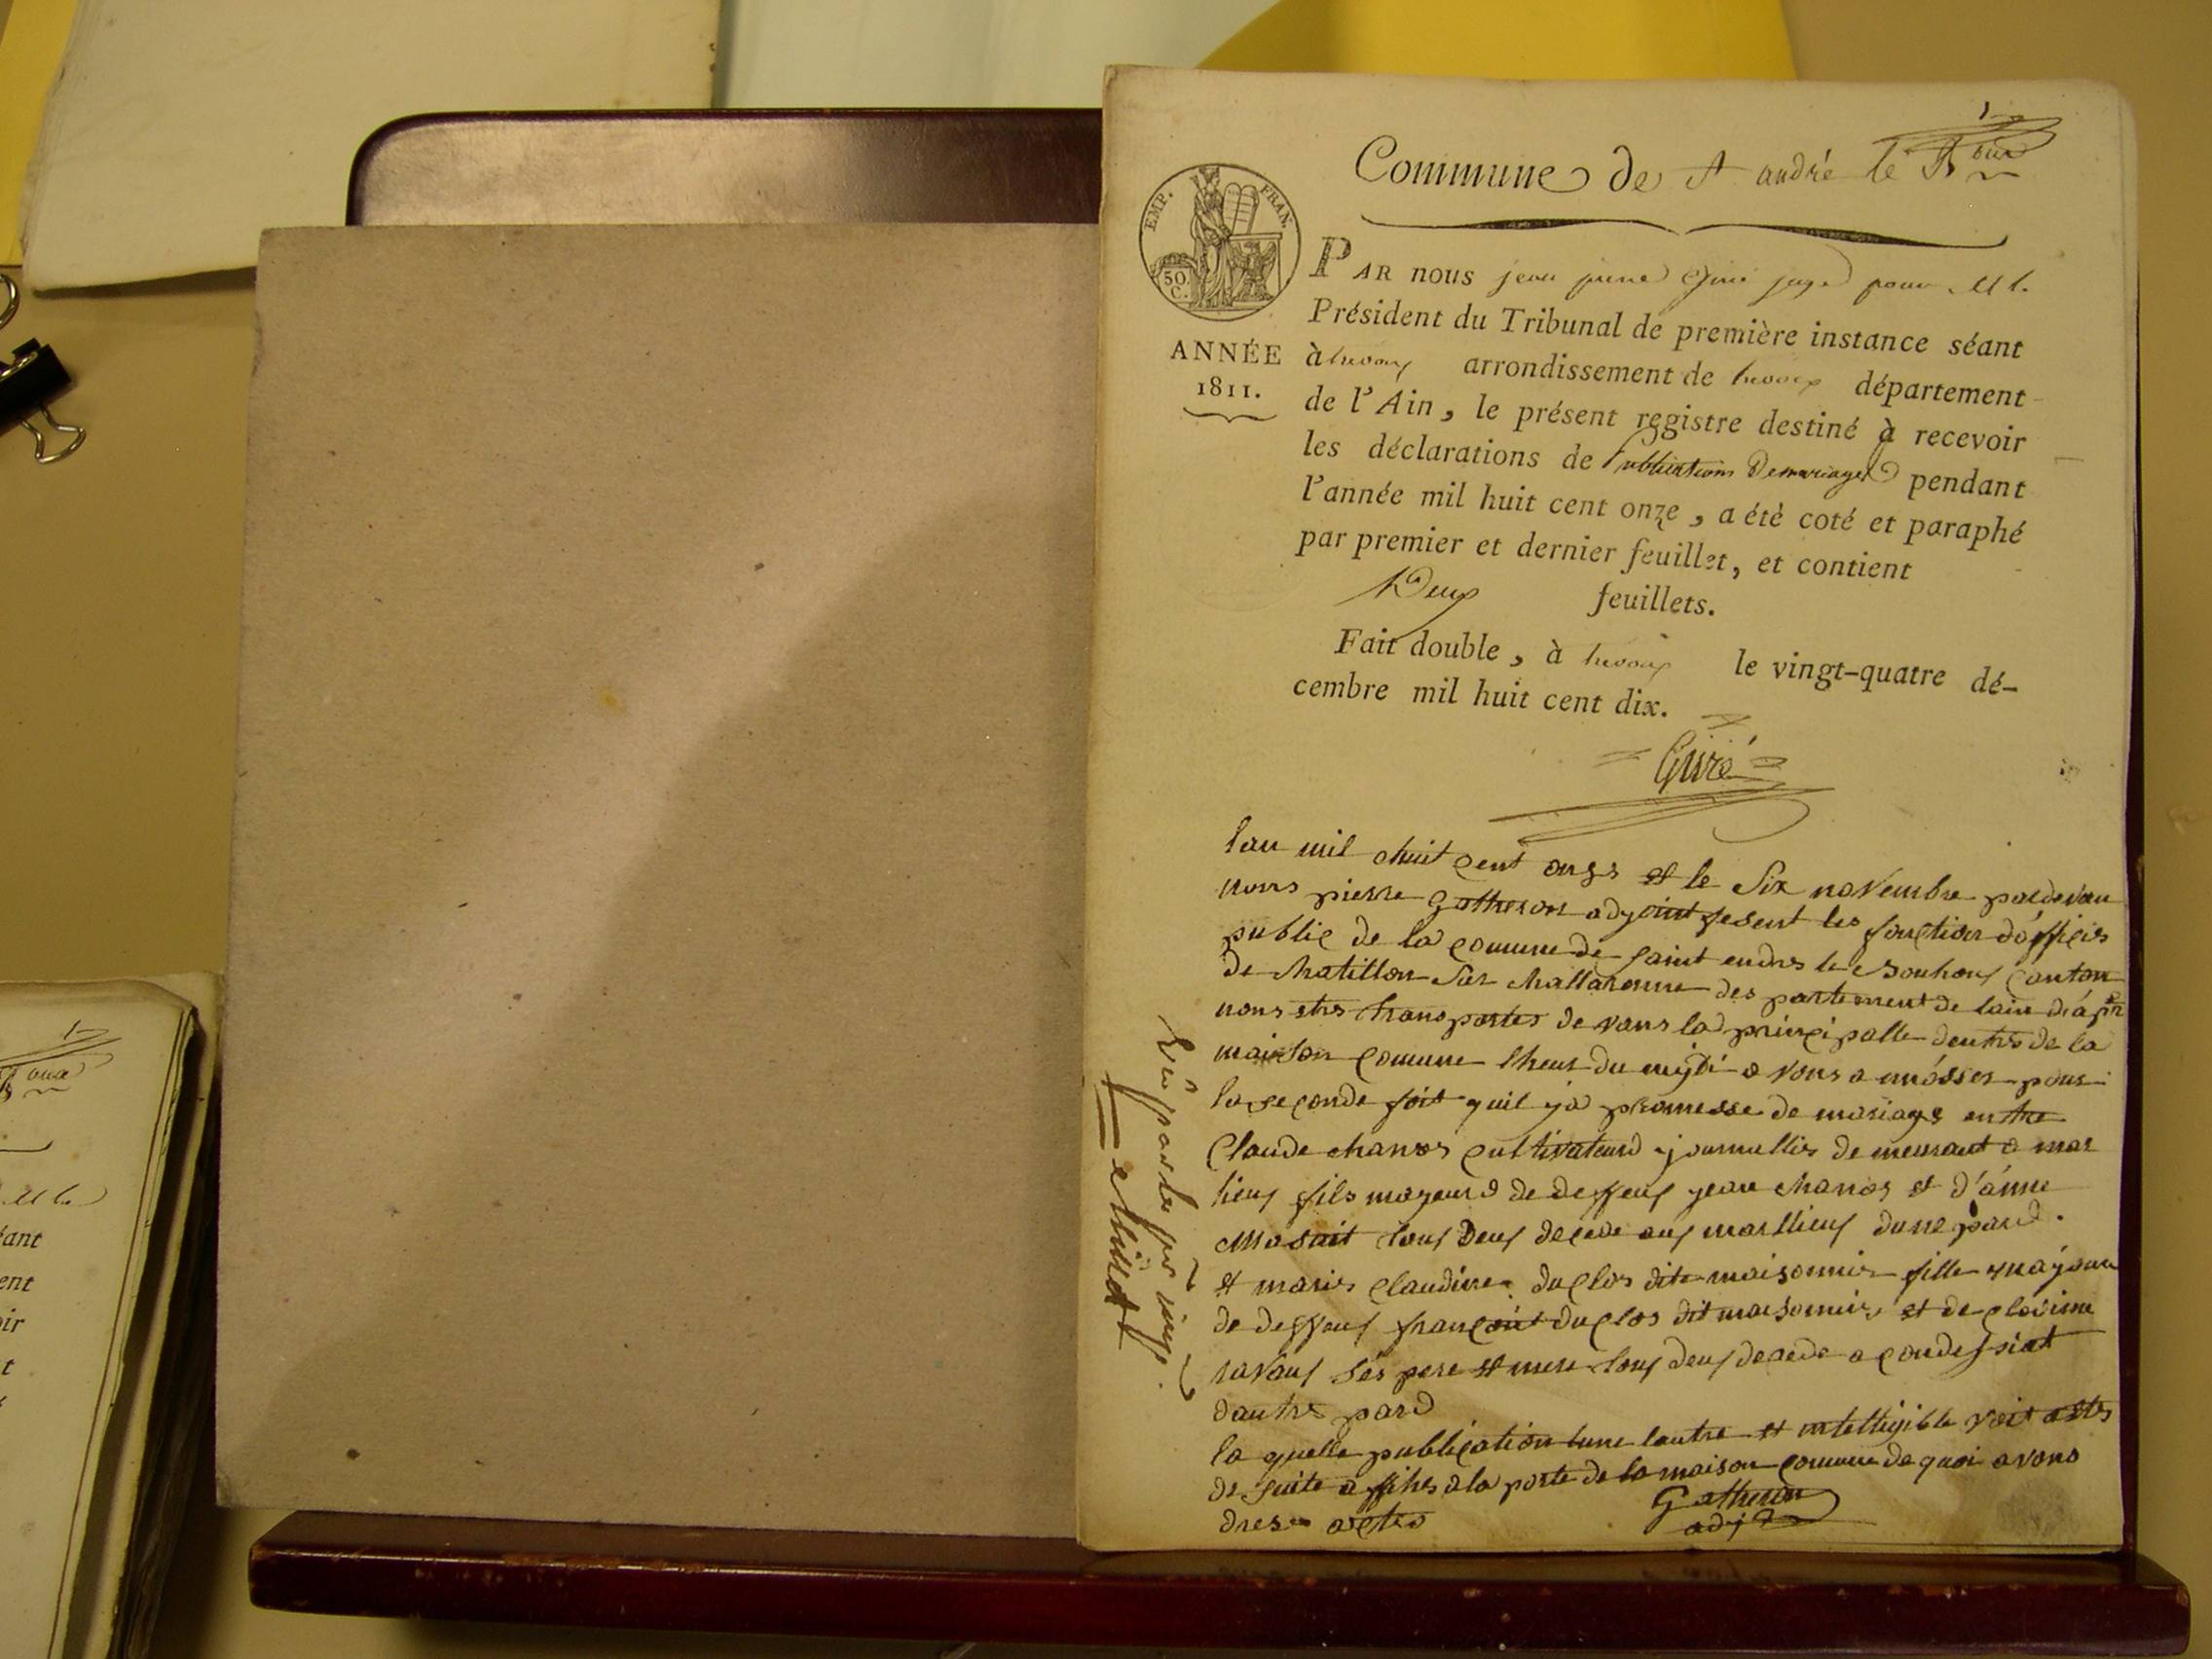 Commune de St andré le
EMP. FRAN.
50.
C.
ANNÉE
1811.
PAR nous jean pierre Giré juge pour M le
Président du Tribunal de première instance séant
à trevoux arrondissement de trevoux département
de l'Ain, le présent registre destiné à recevoir
les déclarations de Publications Demariages pendant
l'année mil huit cent onze, a été coté et paraphé
par premier et dernier feuillet, et contient
Deux feuillets.
Fait double, à trevoux le vingt-quatre dé-
cembre mil huit cent dix.
Giré
lan mil chuit cent onze et le Six novembre pardevan
nous pierre gatheron adjoint fesent les fonction doffficies
public de la comune de saint endres le Bouhoux Canton
de Chatillon Sur Challaronne des partement de lain
nous etres transportes de vans la principalle dentres de la
maison comune lheur du midi a vons a
la seconde foit quil ja promesse de mariages entre
Claude chanos cultivateurd journallies de meurant a mar
lieux fils majeurd de deffeux jean chanos et d'anne
tous Deux decede aux marllieux dune pard.
et marie claudine duclos dite maisonnier fille majeure
de deffeux françoit duclos dit maisonnier et de
ravaux Sés pere et mere tous deux decede a condessiat
dautres pard
la quelle publication lune lautre et intelligible voit
de Suite affiches a la porte de la maison comune de quoi avons
dresse actes
Gatheron
adj
ant
ent
oir
t